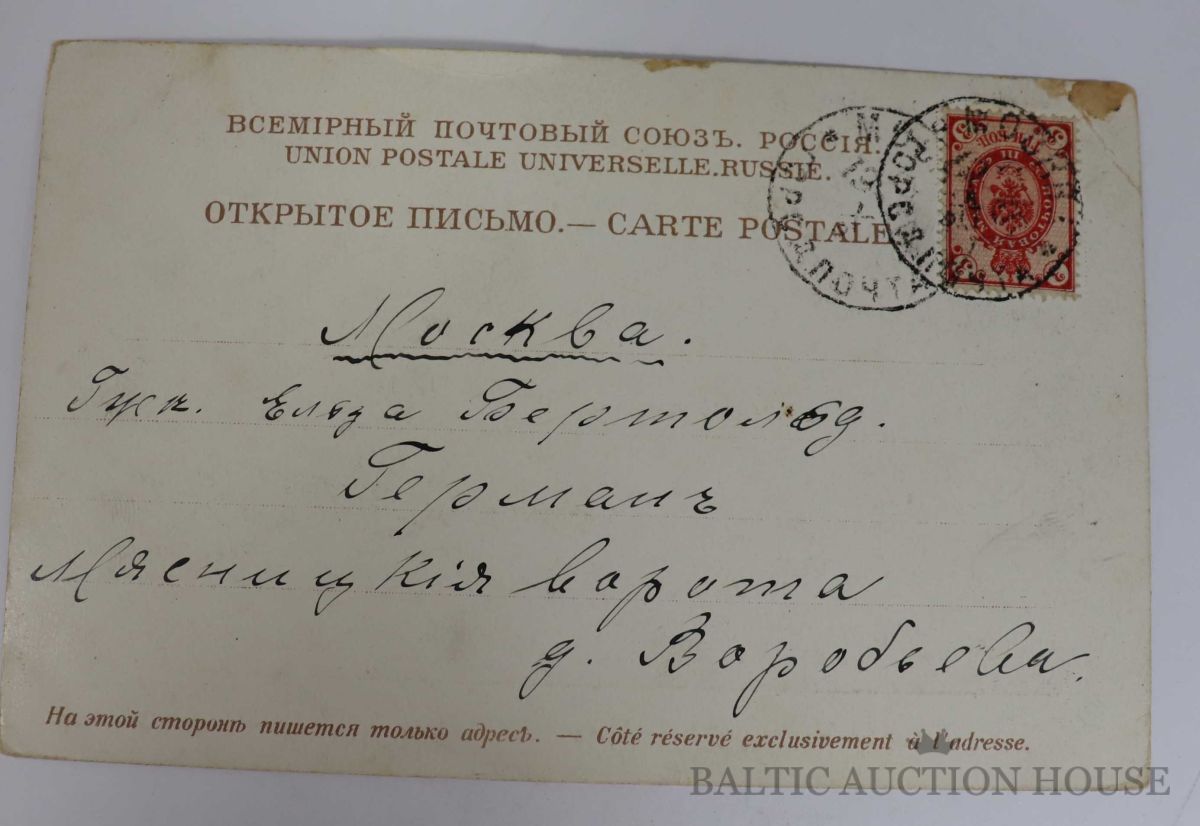 ВСЕМІРНЫЙ ПОЧТОВЫЙ СОЮЗЪ. РОССІЯ.
UNION POSTALE UNIVERSELLE. RUSSIE.
ОТКРЫТОЕ ПИСЬМО.— CARTE POSTALE
МОСКВА
ПОЧТА
3
3
Москва.
Гжи. Ельза Бертольд.
Германъ
Мясницкія ворота
д. Воробьева.
На этой сторонѣ пишется только адресъ. — Côté réservé exclusivement à l'adresse.
BALTIC AUCTION HOUSE